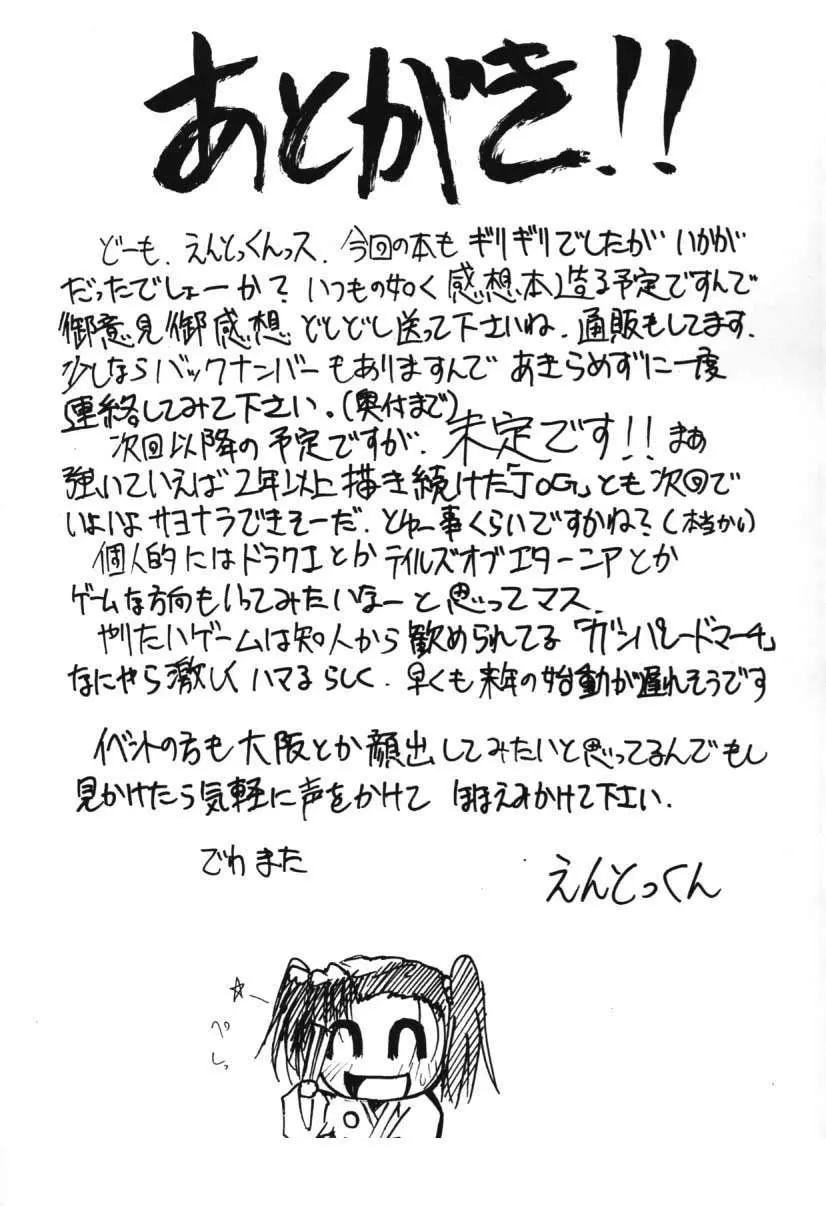 あとがき!!
どーも、えんとっくんっス、今回の本もギリギリでしたがいかが
だったでしょーか?いつもの如く感想本造る予定ですんで
御意見御感想どしどし送って下さいね、通販もしてます、
少しならバックナンバーもありますんであきらめずに一度
連絡してみて下さい。(奥付まで)
次回以降の予定ですが、未定です!!まぁ
強いていえば2年以上描き続けた「JOG」とも次回で
いよいよサヨナラできそーだ、とゆー事くらいですかね?(本当かい)
個人的にはドラクエとかテイルズオブエターニアとか
ゲームな方向もいってみたいなーと思ってマス、
やりたいゲームは知人から歓められてる「ガンパレードマーチ」
なにやら激しくハマるらしく、早くも来年の始動が遅れそうです
イベントの方も大阪とか顔出してみたいと思ってるんでもし
見かけたら気軽に声をかけてほほえみかけて下さい、
でわまた
えんとっくん
ぺしっ